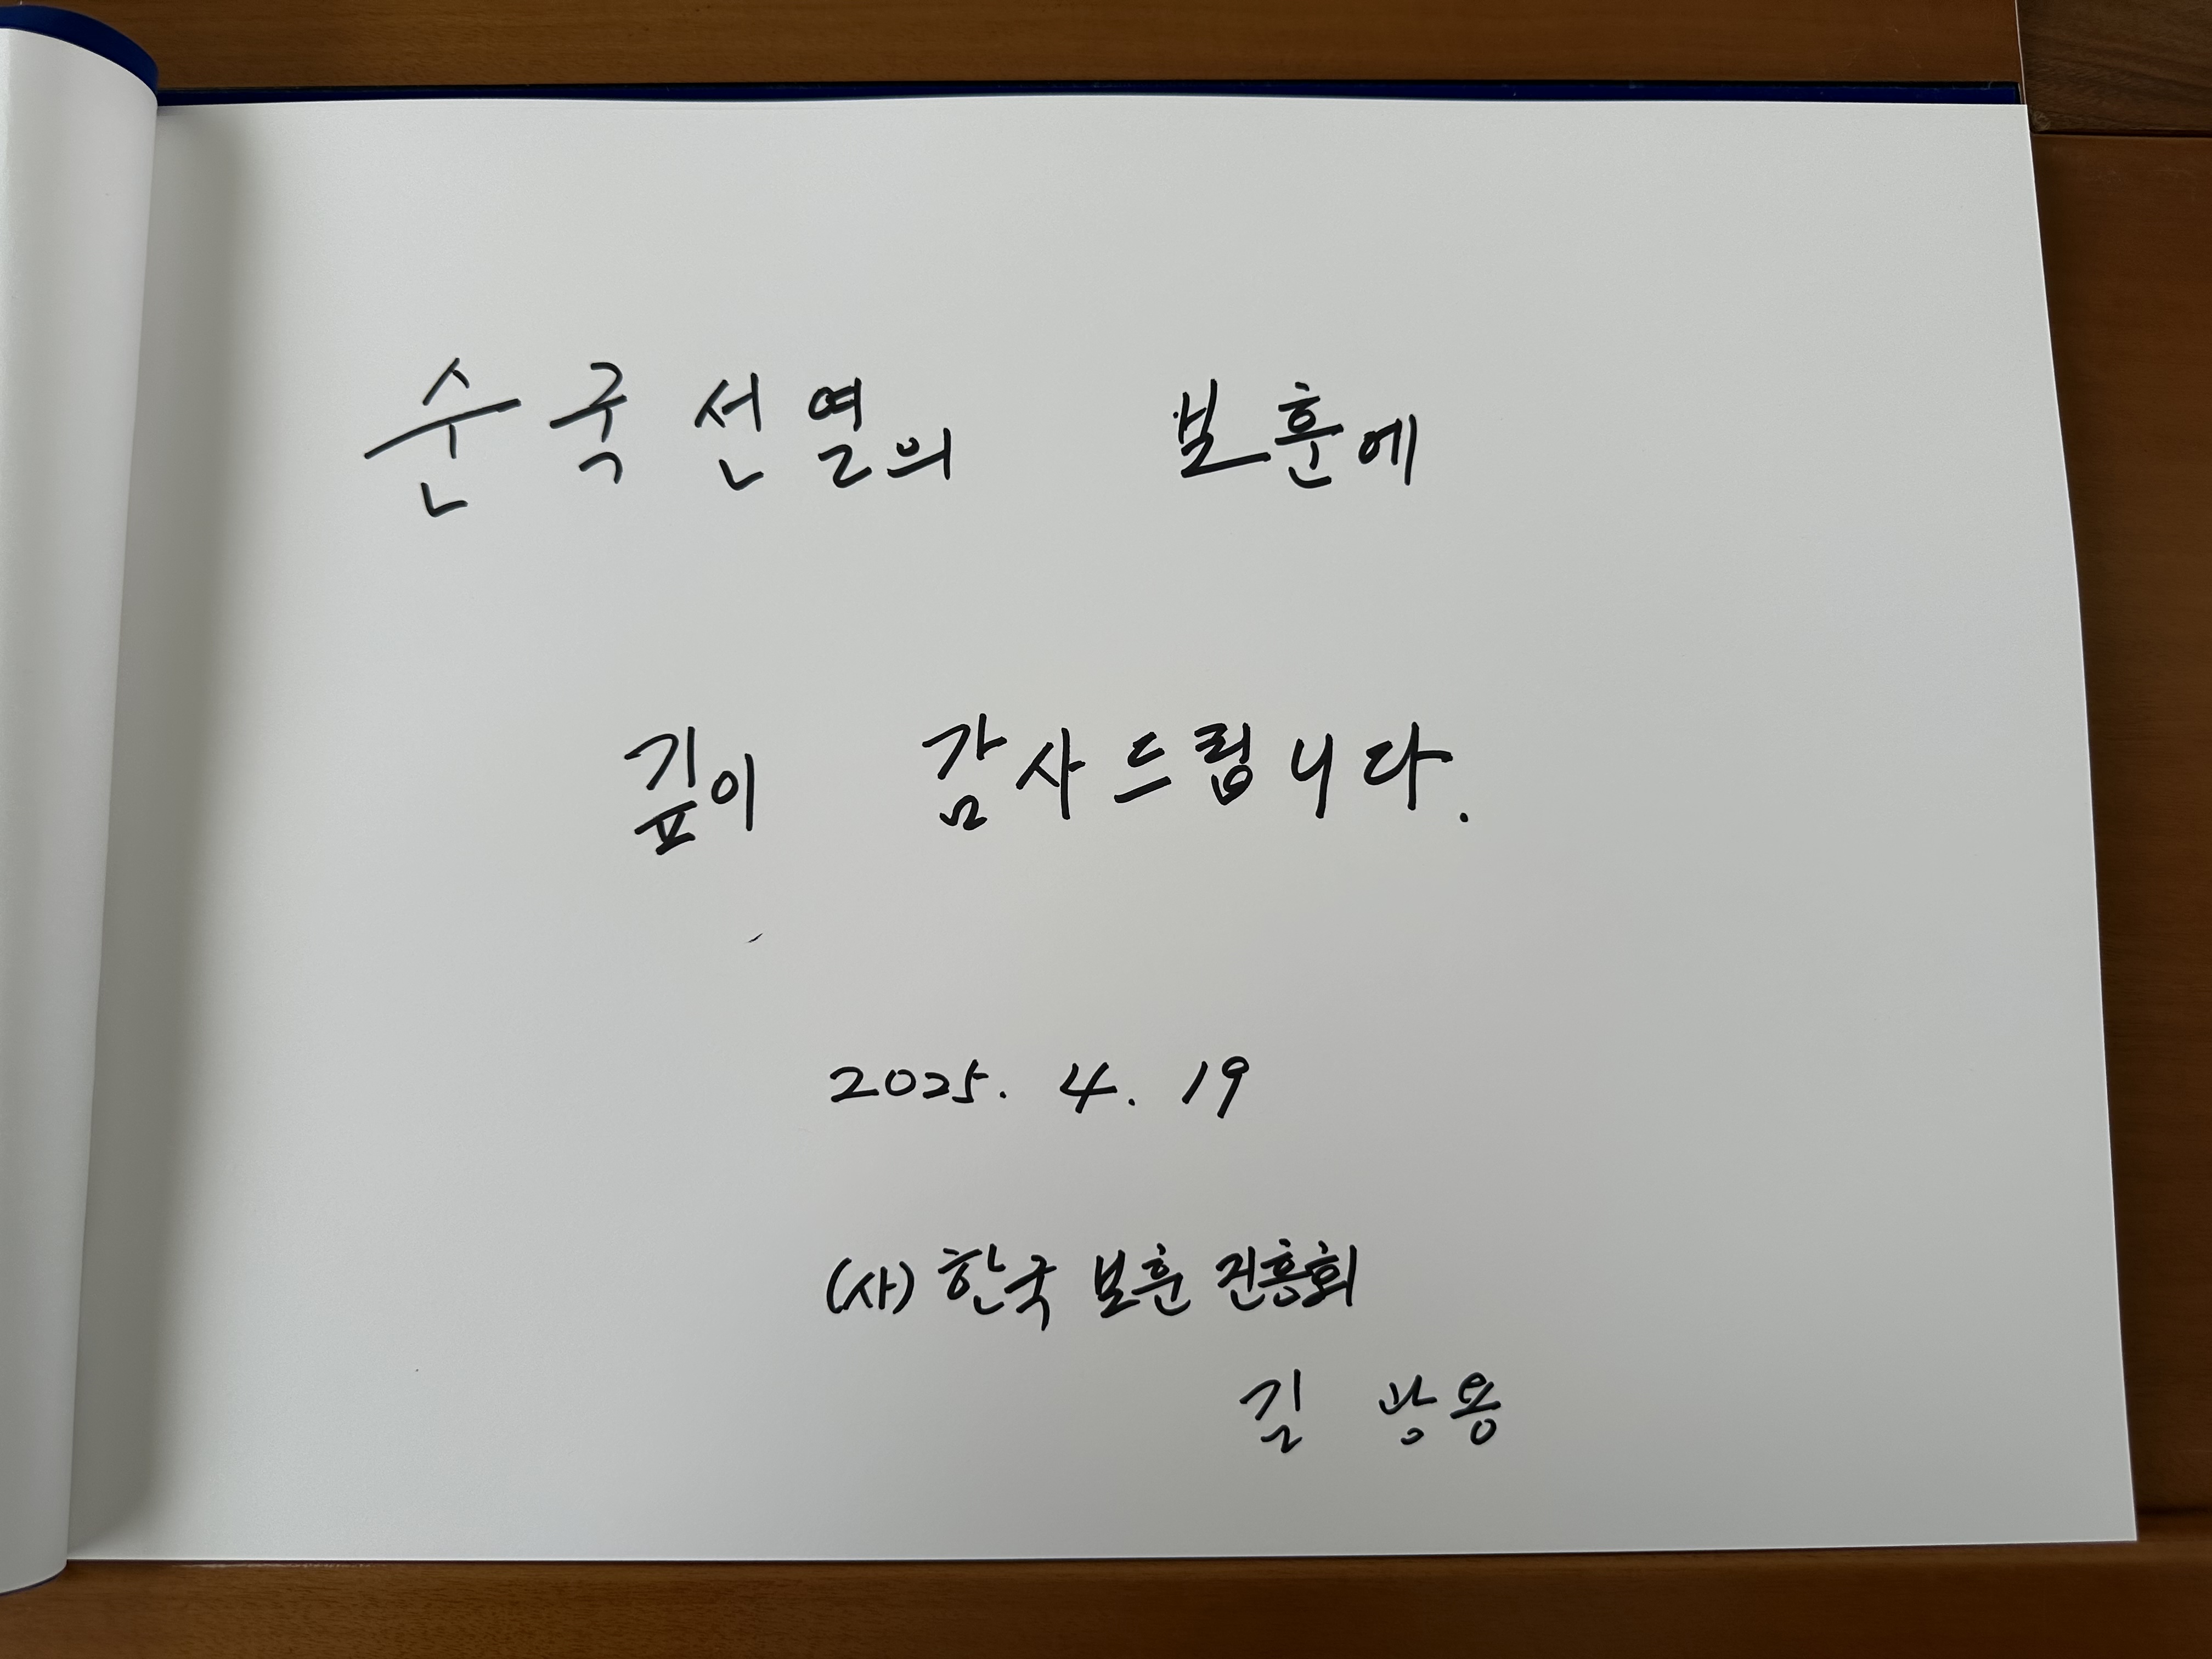 순국선열의 보훈에
깊이 감사드립니다.
2025. 4. 19
(사) 한국 보훈 진흥회
길 광용